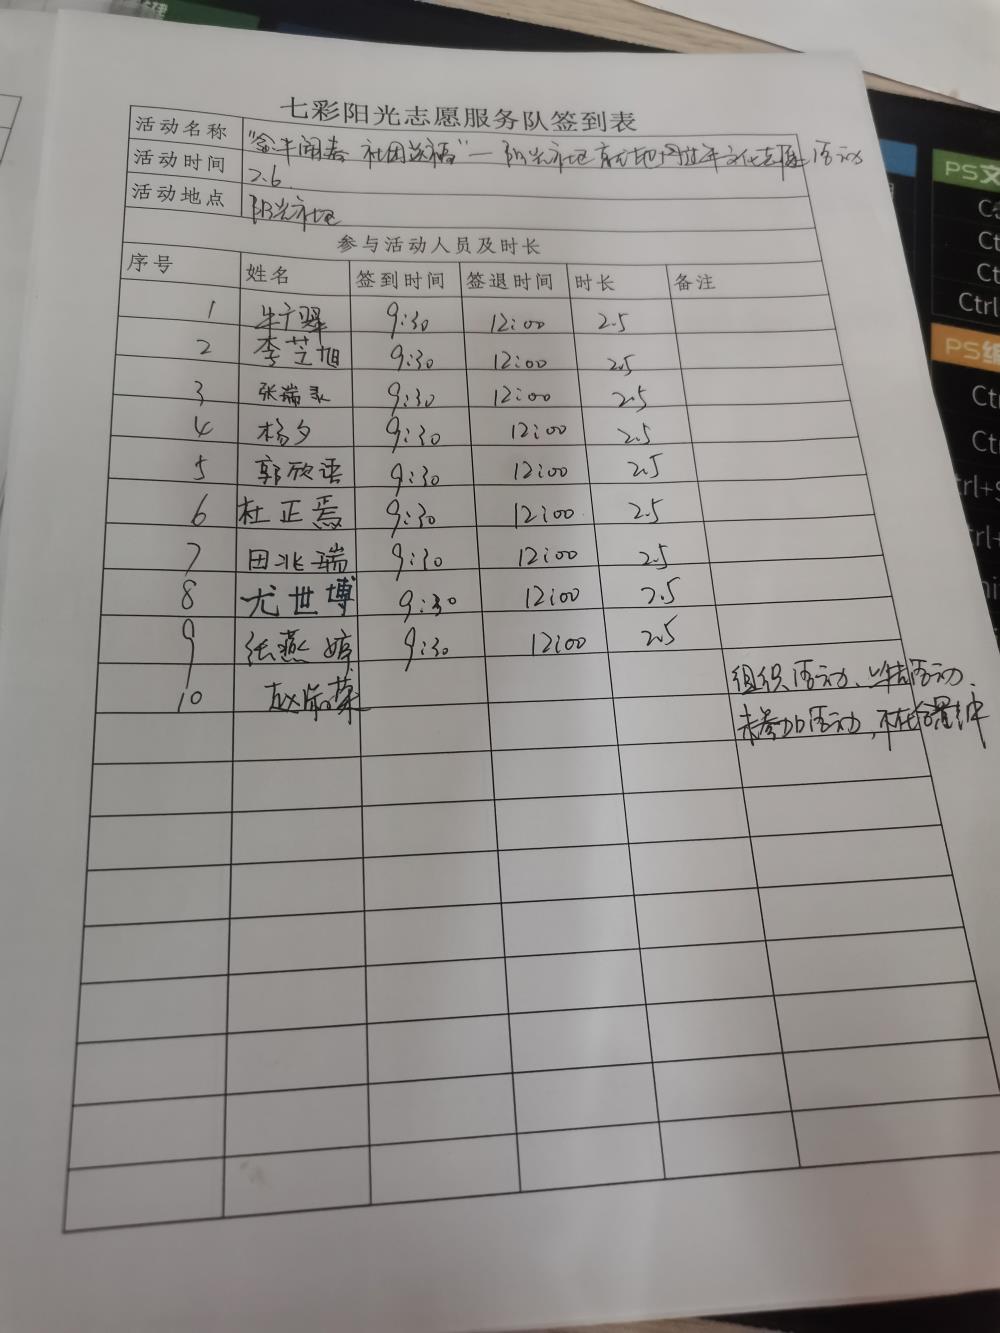 七彩阳光志愿服务队签到表
活动名称 "金牛闹春 社团送福"—阳光社区 过年文化志愿活动
活动时间 2.6
活动地点 阳光社区
参与活动人员及时长
序号 姓名 签到时间 签退时间 时长 备注
1 9:30 12:00 2.5
2 李芝旭 9:30 12:00 2.5
3 张瑞 9:30 12:00 2.5
4 杨夕 9:30 12:00 2.5
5 郭欣语 9:30 12:00 2.5
6 杜正焉 9:30 12:00 2.5
7 田兆瑞 9:30 12:00 2.5
8 尤世博 9:30 12:00 2.5
9 张燕婷 9:30 12:00 2.5
10 赵 荣 组织活动、总结活动、
未参加活动,不在合照中
PS文
Ct
Ct
Ctrl
PS编
Ct
Ct
trl+
trl+